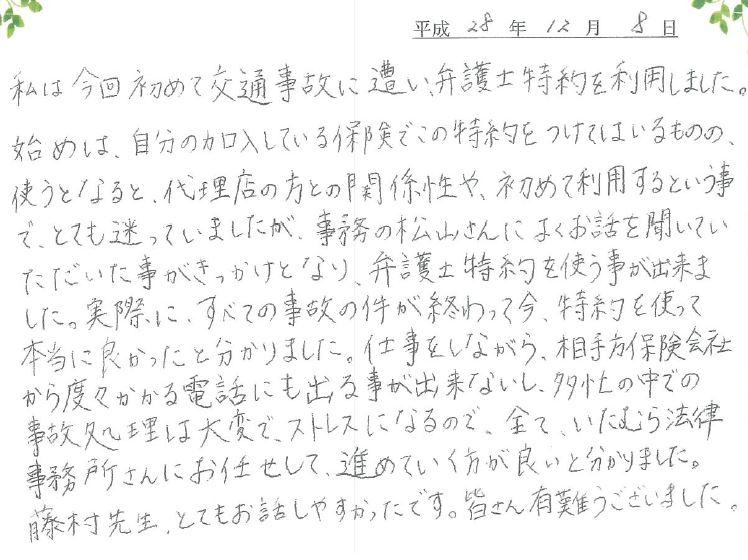 平成 28 年 12 月 8 日
私は今回初めて交通事故に遭い、弁護士特約を利用しました。
始めは、自分の加入している保険でこの特約をつけてはいるものの、
使うとなると、代理店の方との関係性や、初めて利用するという事
で、とても迷っていましたが、事務の松山さんによくお話を聞いてい
ただいた事がきっかけとなり、弁護士特約を使う事が出来ま
した。実際に、すべての事故の件が終わって今、特約を使って
本当に良かったと分かりました。仕事をしながら、相手方保険会社
から度々かかる電話にも出る事が出来ないし、多忙の中での
事故処理は大変で、ストレスになるので、全て、いたむら法律
事務所さんにお任せして、進めていく方が良いと分かりました。
藤村先生、とてもお話しやすかったです。皆さん有難うございました。